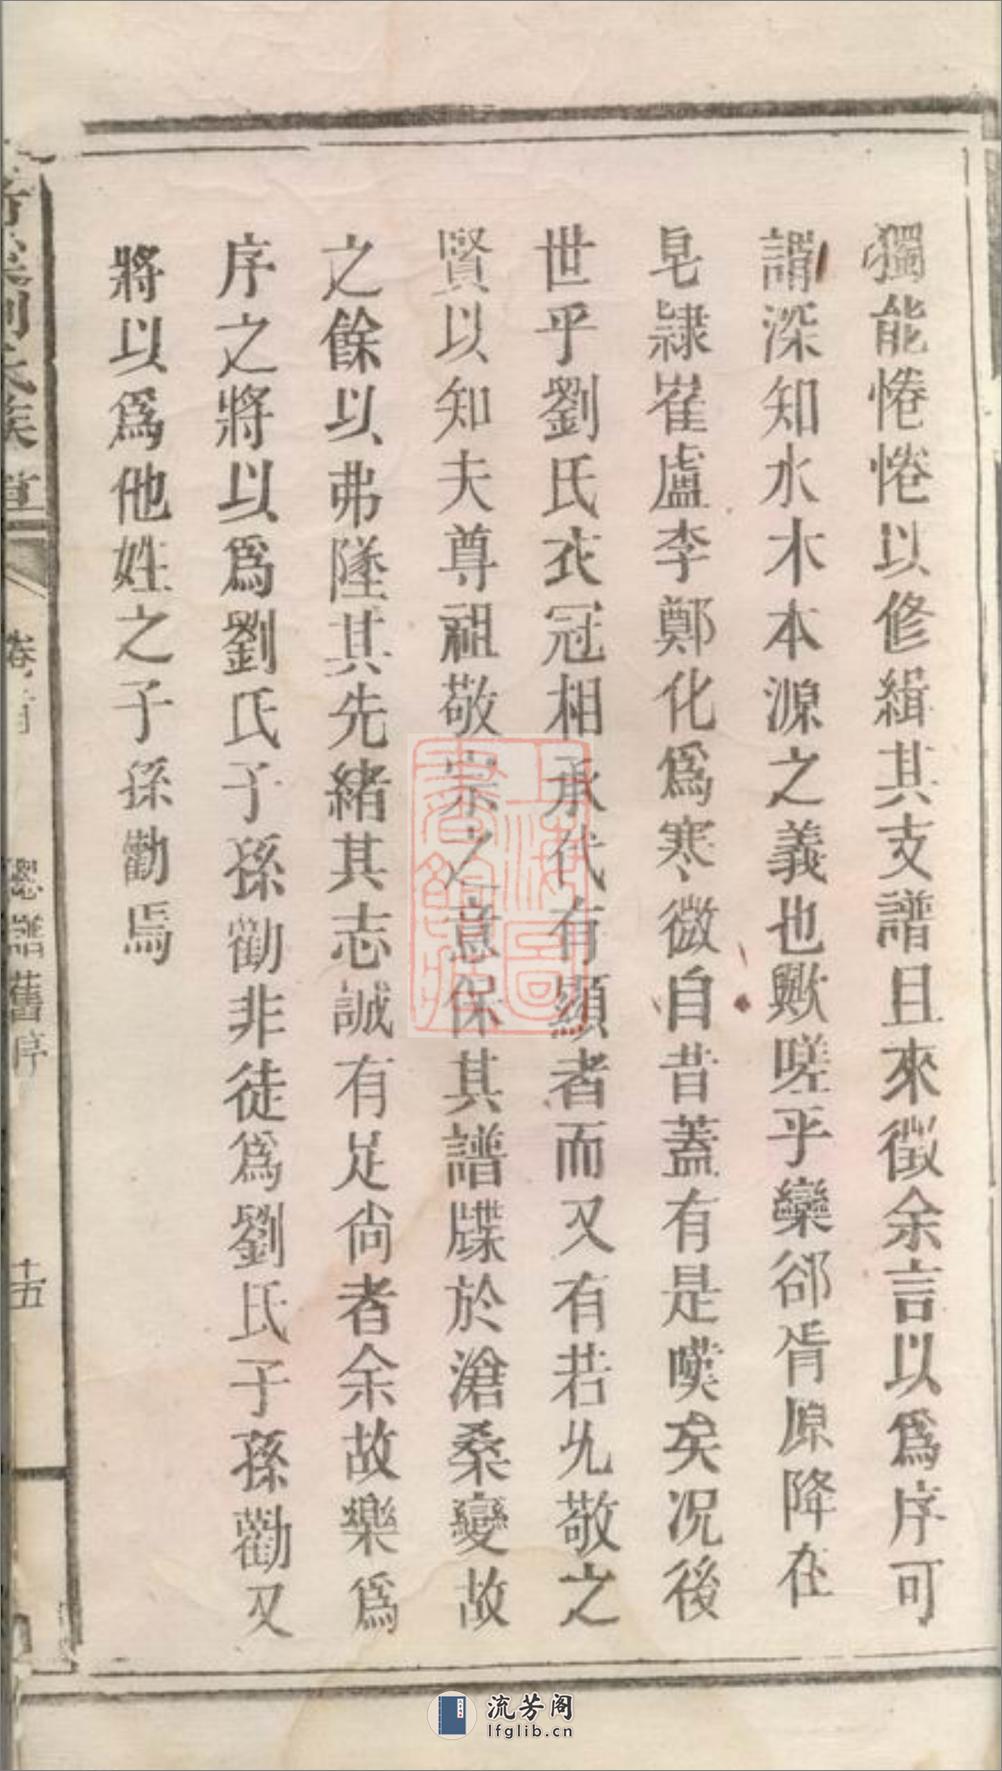 獨能惓惓以修緝其支譜且來徵余言以爲序可
謂深知水木本源之義也歟嗟乎欒郤胥原降在
皂隸崔盧李鄭化爲寒微自昔蓋有是嘆矣况後
世乎劉氏衣冠相承代有顯者而又有若允敬之
賢以知夫尊祖敬宗之意保其譜牒於滄桑變故
之餘以弗墜其先緒其志誠有足尙者余故樂爲
序之將以爲劉氏子孫勸非徒爲劉氏子孫勸又
將以爲他姓之子孫勸焉
劉氏族
卷首
總譜舊序
十五
上海圖書館藏
流芳阁
lfglib.cn